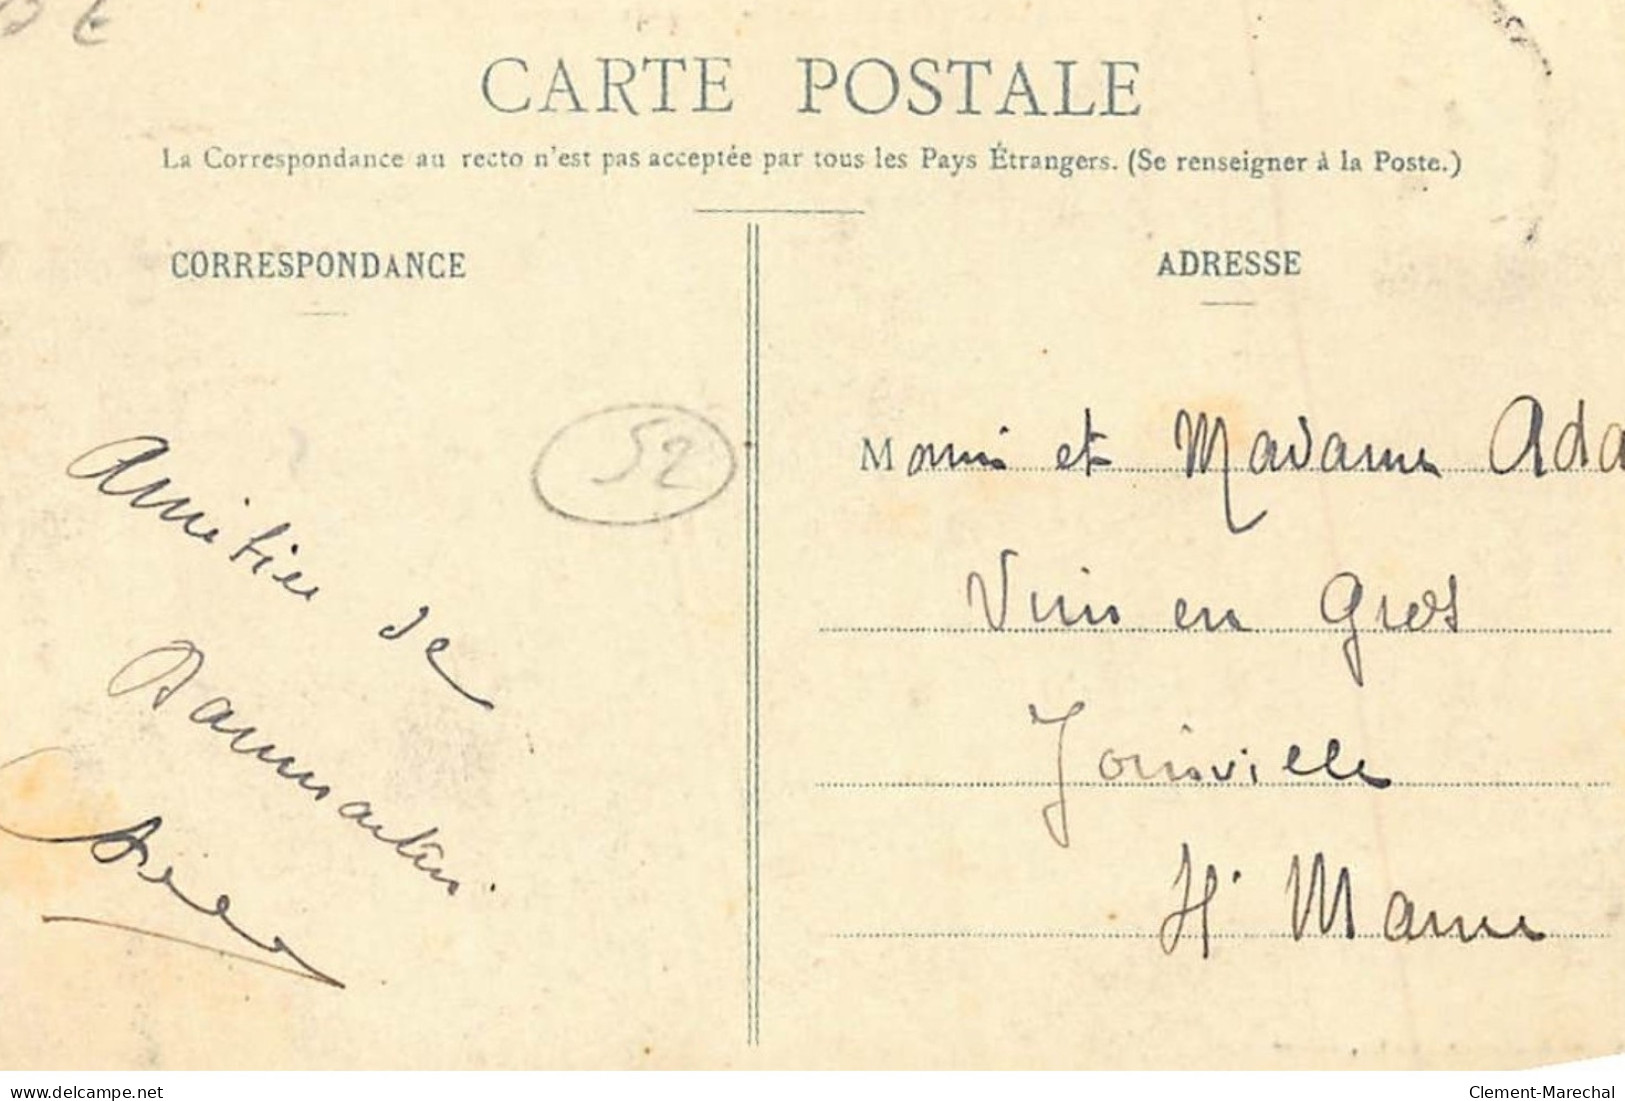 CARTE POSTALE
La Correspondance au recto n'est pas acceptée par tous les Pays Étrangers. (Se renseigner à la Poste.)
CORRESPONDANCE
ADRESSE
52
Amitiés de
Dammartin.
Monsi et Madame Ada
Vins en Gros
Joinville
Hte Marne
delcampe.net
Clement-Marechal